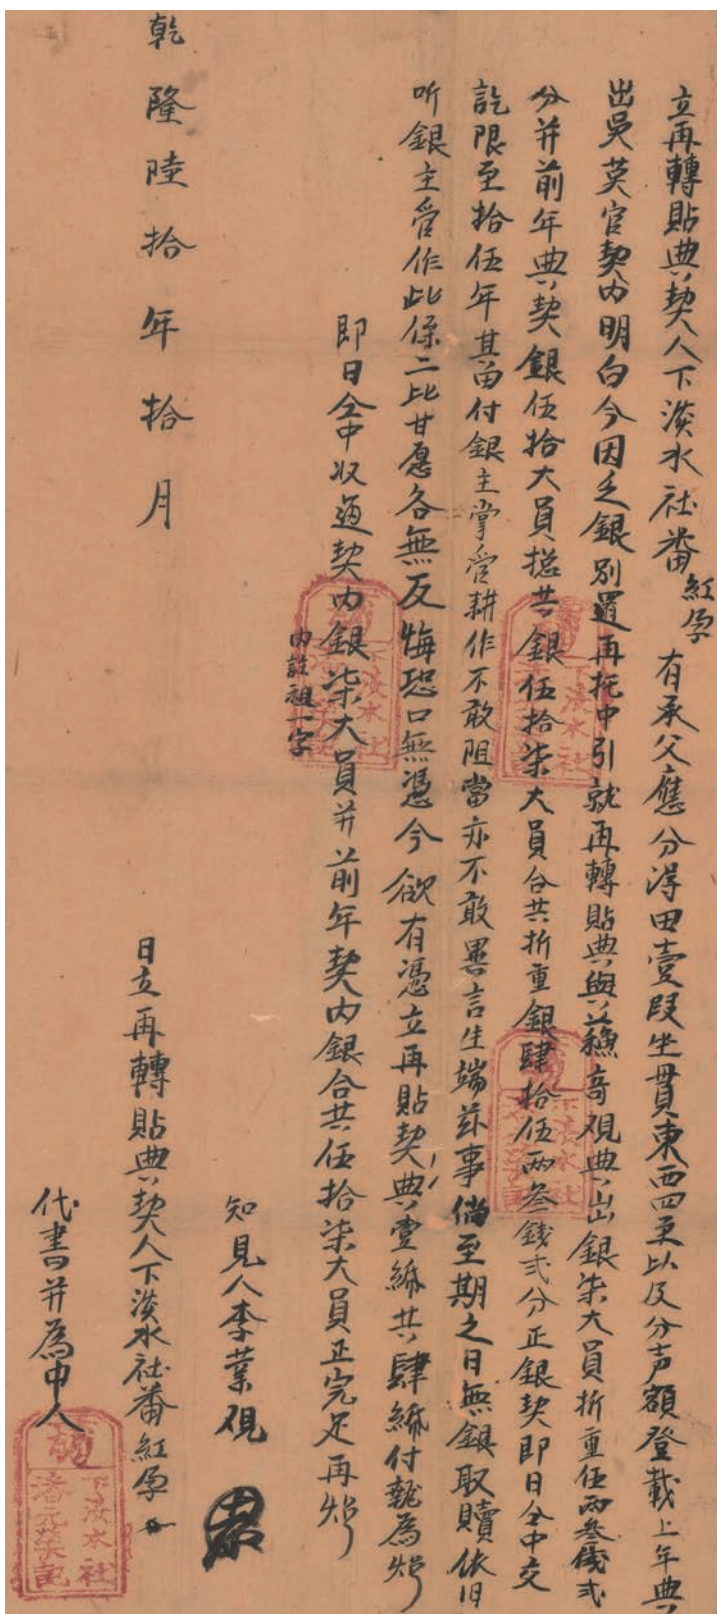 立再轉貼典契人下淡水社番紅孕有承父應分得田壹段坐貫東西四至以及分声額登載上年典
出吳英官契内明白今因乏銀別置再托中引就再轉貼典與蘇奇硯典出銀柒大員折重伍両叁錢弍
分并前年典契銀伍拾大員揔共銀伍拾柒大員合共折重銀肆拾伍両叁錢弍分正銀契即日仝中交
訖限至拾伍年其田付銀主掌管耕作不敢阻當亦不敢異言生端玆事倘至期之日無銀取贖依旧
听銀主管作此係二比甘愿各無反悔恐口無憑今欲有憑立再貼契典壹紙共肆紙付執為炤
即日仝中収過契内銀柒大員并前年契内銀合共伍拾柒大員正完足再炤
内註祖一字
知見人李葉硯
乾隆陸拾年拾月
日立再轉貼典契人下淡水社番紅孕
代書并為中人
下淡水社
潘元
記